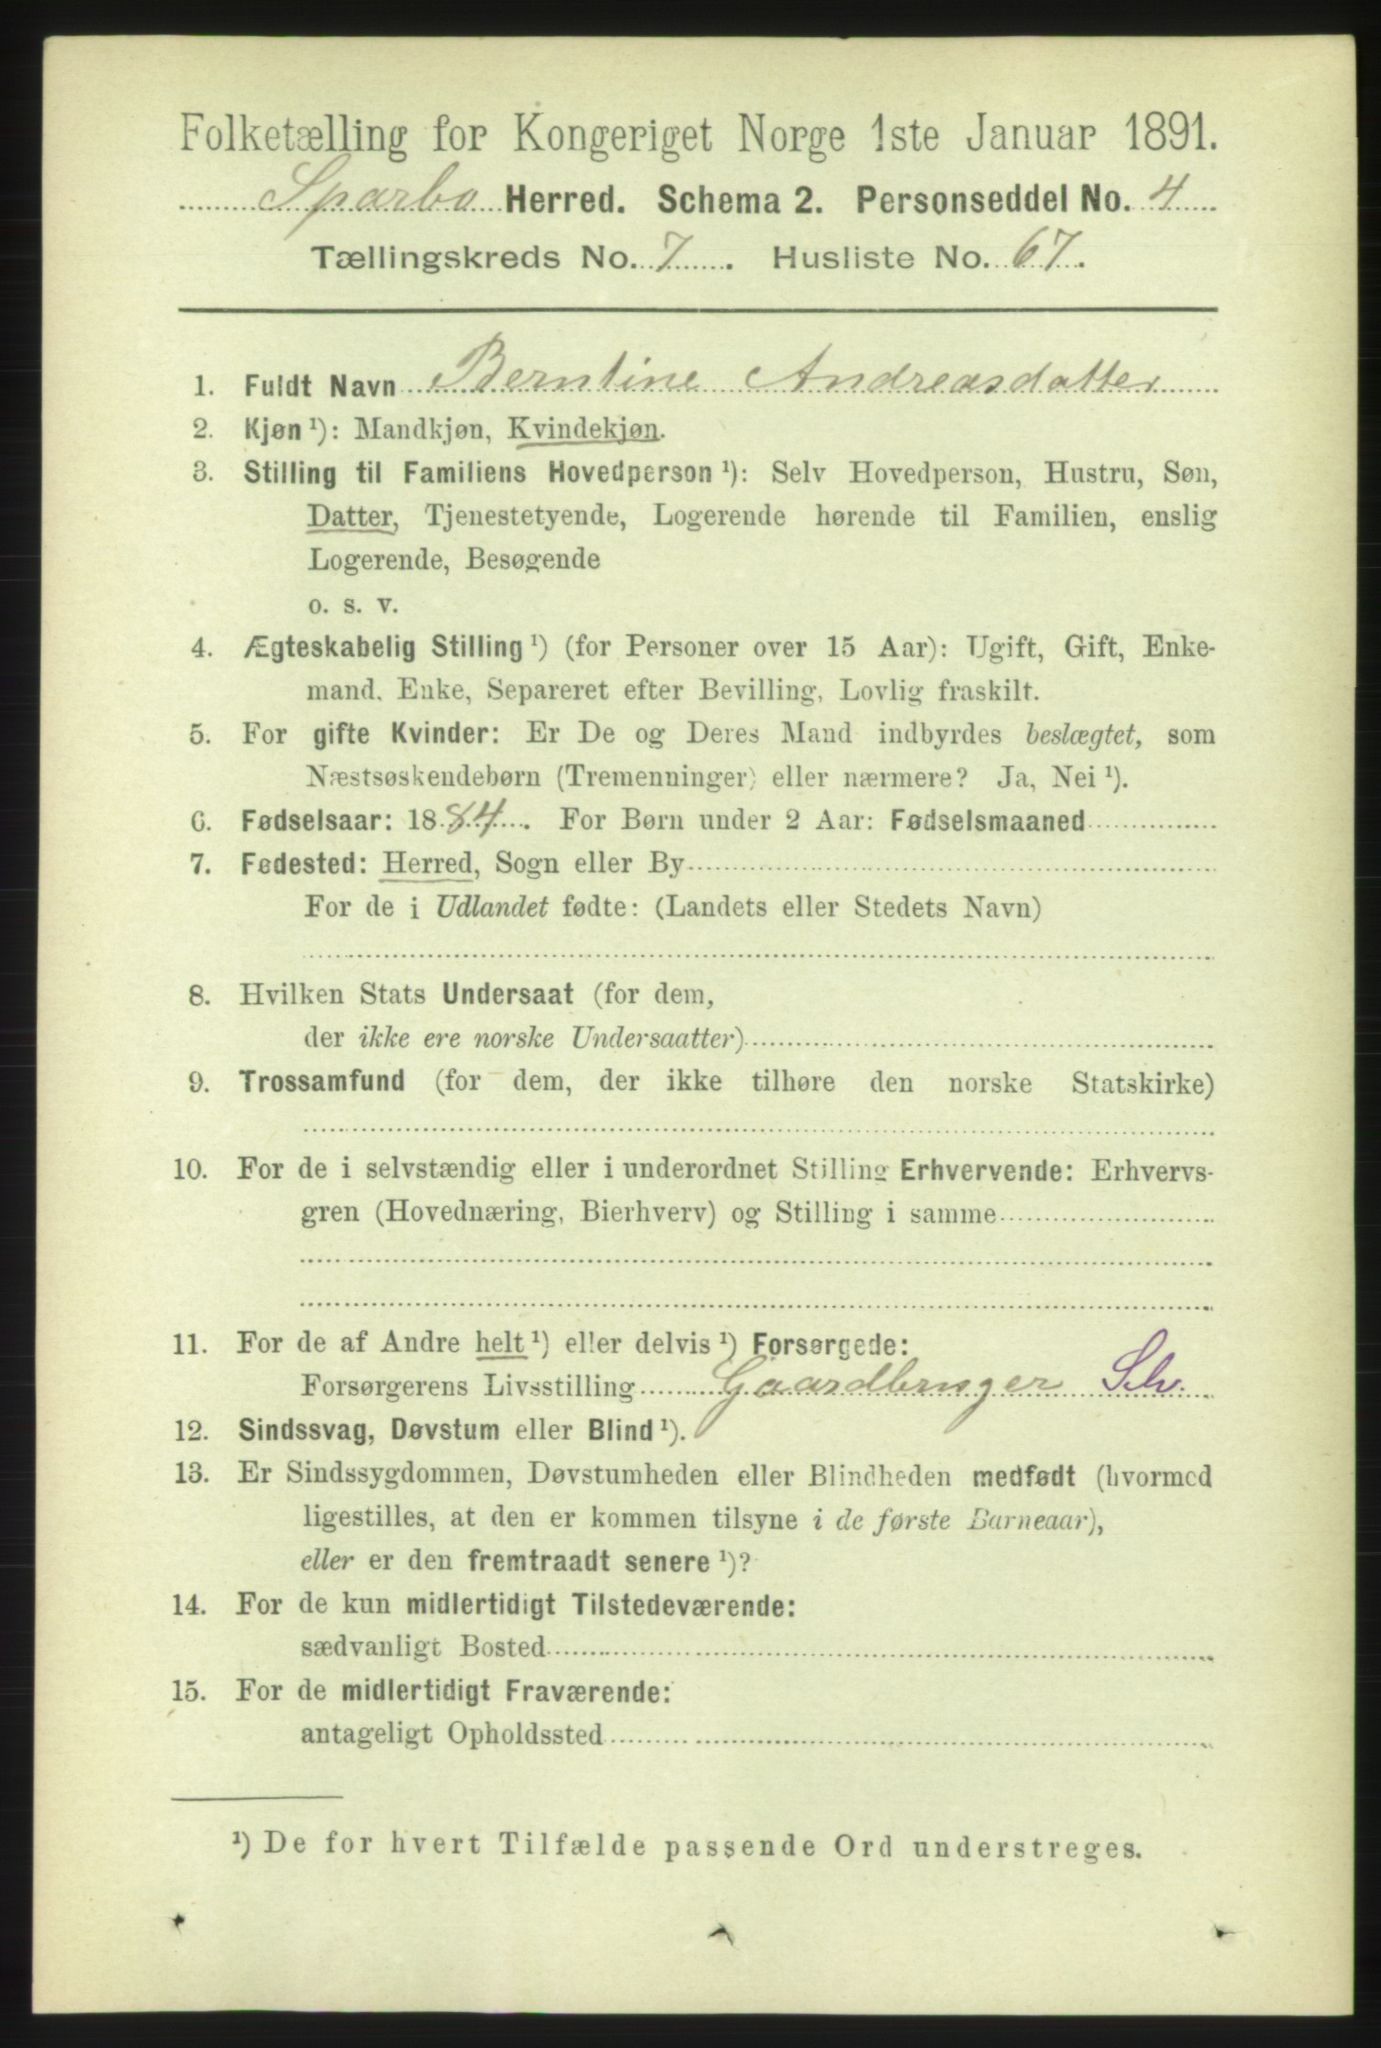 Folketælling for Kongeriget Norge 1ste Januar 1891.
Sparbo Herred. Schema 2. Personseddel No. 4
Tællingskreds No. 7. Husliste No. 67.
1. Fuldt Navn Berntine Andreasdatter
2. Kjøn ¹): Mandkjøn, Kvindekjøn.
3. Stilling til Familiens Hovedperson ¹): Selv Hovedperson, Hustru, Søn,
Datter, Tjenestetyende, Logerende hørende til Familien, enslig
Logerende, Besøgende
o. s. v.
4. Ægteskabelig Stilling ¹) (for Personer over 15 Aar): Ugift, Gift, Enke-
mand, Enke, Separeret efter Bevilling, Lovlig fraskilt.
5. For gifte Kvinder: Er De og Deres Mand indbyrdes beslægtet, som
Næstsøskendebørn (Tremenninger) eller nærmere? Ja, Nei ¹).
6. Fødselsaar: 1884. For Børn under 2 Aar: Fødselsmaaned
7. Fødested: Herred, Sogn eller By
For de i Udlandet fødte: (Landets eller Stedets Navn)
8. Hvilken Stats Undersaat (for dem,
der ikke ere norske Undersaatter)
9. Trossamfund (for dem, der ikke tilhøre den norske Statskirke)
10. For de i selvstændig eller i underordnet Stilling Erhvervende: Erhvervs-
gren (Hovednæring, Bierhverv) og Stilling i samme
11. For de af Andre helt ¹) eller delvis ¹) Forsørgede:
Forsørgerens Livsstilling Gaardbruger Selv.
12. Sindssvag, Døvstum eller Blind ¹).
13. Er Sindssygdommen, Døvstumheden eller Blindheden medfødt (hvormed
ligestilles, at den er kommen tilsyne i de første Barneaar),
eller er den fremtraadt senere ¹)?
14. For de kun midlertidigt Tilstedeværende:
sædvanligt Bosted
15. For de midlertidigt Fraværende:
antageligt Opholdssted
¹) De for hvert Tilfælde passende Ord understreges.